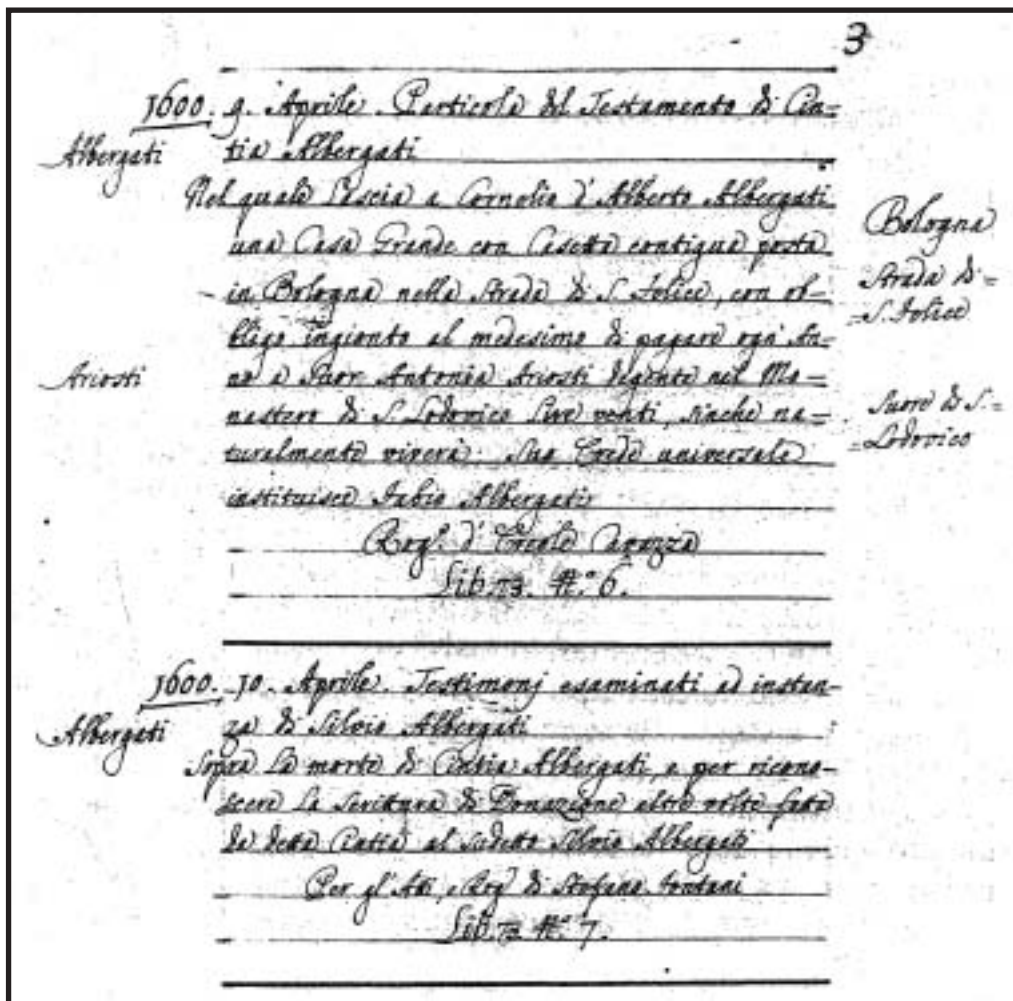 3
1600. 9. Aprile. Particola del Testamento di Cin=
Albergati
tia Albergati
Nel quale lascia a Cornelio d'Alberto Albergati
una Casa Grande con Casetta contigua posta
in Bologna nella Strada di S. Felice, con ob=
bligo ingionto al medesimo di pagare ogn'An=
no a Suor Antonia Ariosti degente nel Mo=
nastero di S. Lodovico lire venti, sinche na=
turalmente viverà. Sua Erede universale
instituisce Fabio Albergati
Rog.o d'Ercole Cavazza
Lib. 73. N.o 6.
Bologna
Strada di =
= S. Felice
Ariosti
Suore di S. =
= Lodovico
1600. 10. Aprile. Testimonj esaminati ad instan=
Albergati
za di Silvio Albergati
Sopra la morte di Cintia Albergati, e per ricono=
scere la Scrittura di Donazione altre volte fatta
da detta Cintia al sudetto Silvio Albergati
Per gl'Atti, e Rog.i di Stefano Fontani
Lib. 73. N.o 7.